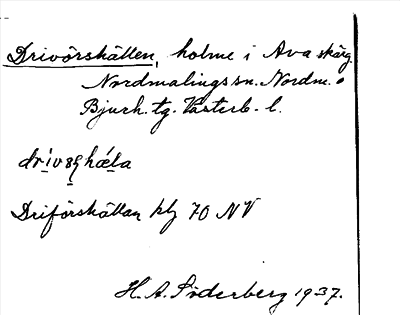 Drivörshällen, holme i Ava skärg.
Nordmalings sn. Nordm. o
Bjurh. tg. Västerb. l.
Driförshällan kbl 70 NV
H. A. Söderberg 1937.